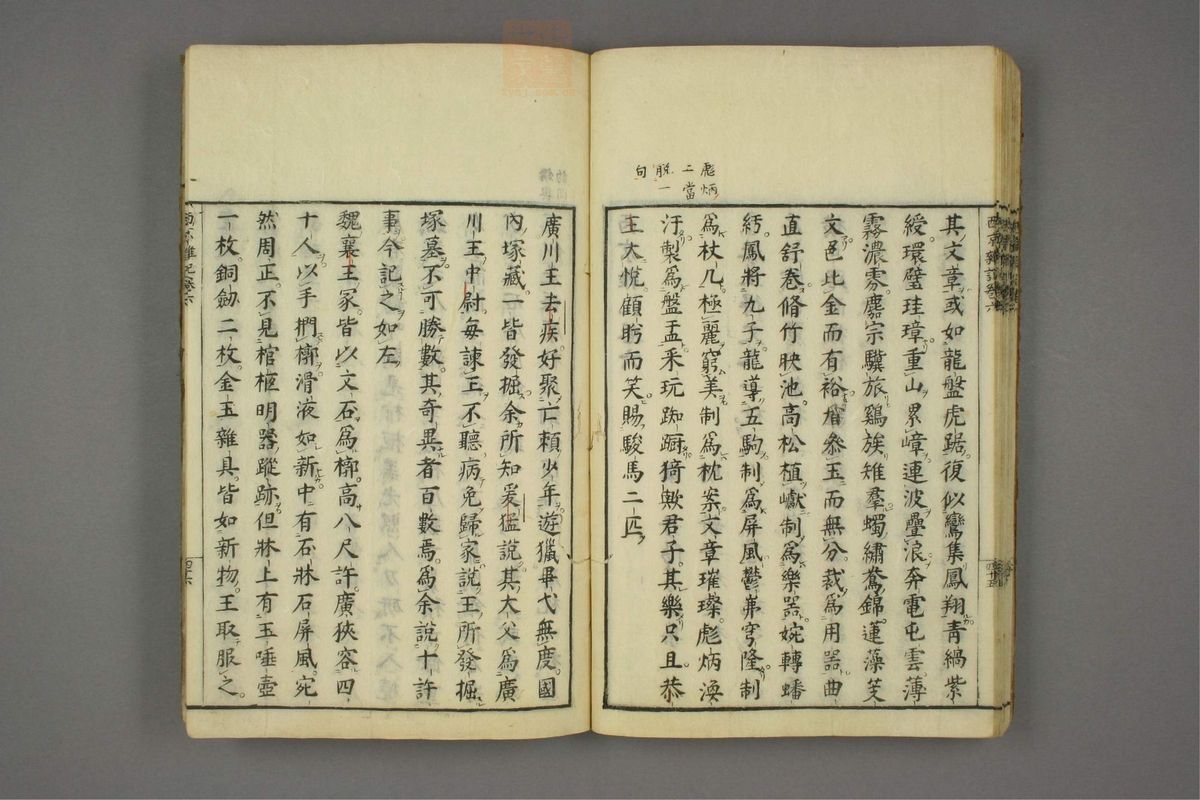 彪炳
二當
脱一
句
其文章或如龍盤虎踞復似鸞集鳳翔青緺紫
綬環璧珪璋重山累嶂連波疊浪奔電屯雲薄
霧濃雰麚宗驥旅鷄族雉羣蠋繡鴦錦蓮藻芰
文色比金而有裕質參玉而無分裁爲用器曲
直舒卷脩竹映池高松植巘制爲樂器婉轉蟠
紆鳳將九子龍導五駒制爲屏風鬱岪穹隆制
爲杖几極麗窮美制爲枕案文章璀璨彪炳渙
汙製爲盤盂采玩踟蹰猗歟君子其樂只且恭
王大悅顧眄而笑賜駿馬二匹
廣川王去疾好聚亡頼少年遊獵畢弋無度國
內塚藏一皆發掘余所知爰猛說其大父爲廣
川王中尉每諫王不聽病免歸家說王所發掘
塚墓不可勝數其奇異者百數焉爲余說十許
事今記之如左
魏襄王冢皆以文石爲槨高八尺許廣狹容四
十人以手捫槨滑液如新中有石牀石屏風宛
然周正不見棺柩明器蹤跡但牀上有玉唾壺
一枚銅劒二枚金玉雜具皆如新物王取服之